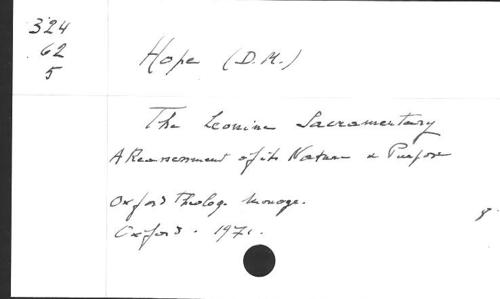 324
62
5
Hope (D.M.)
The Leonine Sacramentary
A Reassessment of its Nature & Purpose
Oxford Theolog. Monogr.
Oxford. 1971.